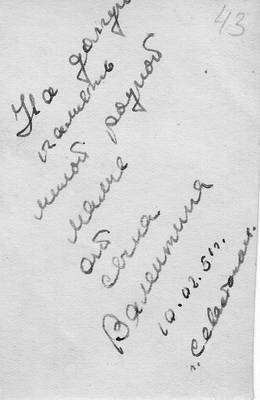 43
На долгую
память
милой родной
маме
от
сына
Валентина
10.02.51г.
г. Севастополь.